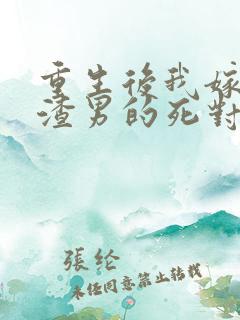 重生後我嫁
渣男的死對
張纶
未经同意禁止转载